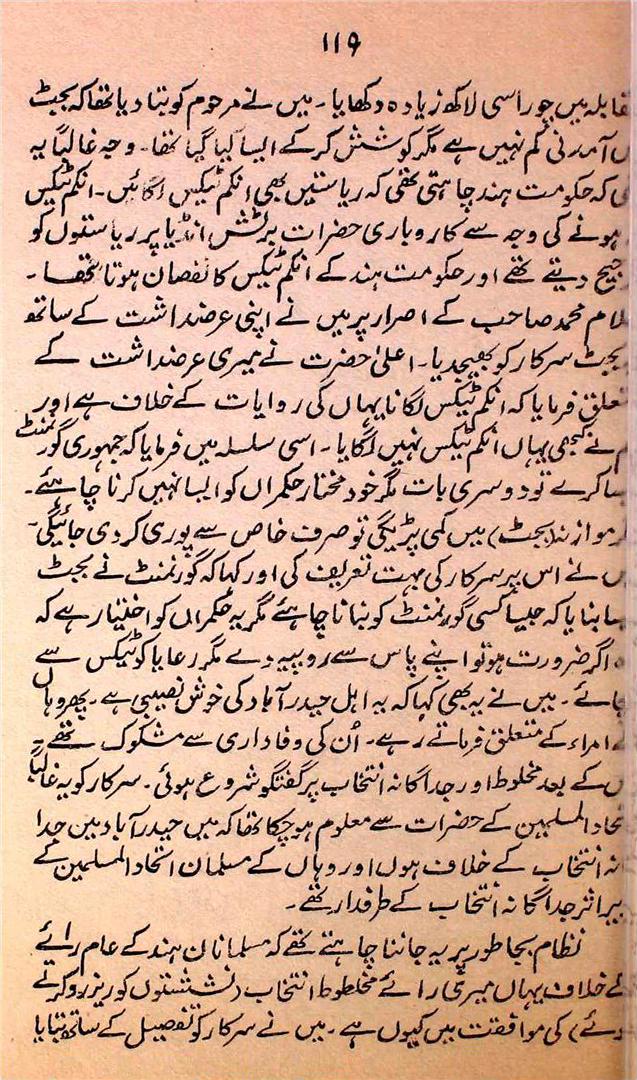 ۱۱۹
قابلہ میں چوراسی لاکھ زیادہ دکھایا۔ میں نے مرحوم کو بتا دیا تھا کہ بجٹ
ں آمدنی کم نہیں ہے مگر کوشش کر کے ایسا کیا گیا تھا۔ وجہ غالباً یہ
ی کہ حکومت ہند چاہتی تھی کہ ریاستیں بھی انکم ٹیکس لگائیں۔ انکم ٹیکس
ہونے کی وجہ سے کاروباری حضرات برٹش انڈیا پر ریاستوں کو
جیح دیتے تھے اور حکومت ہند کے انکم ٹیکس کا نقصان ہوتا تھا۔
لام محمد صاحب کے اصرار پر میں نے اپنی عرضداشت کے ساتھ
بجٹ سرکار کو بھیجدیا۔ اعلیٰ حضرت نے میری عرضداشت کے
تعلق فرمایا کہ انکم ٹیکس لگانا یہاں کی روایات کے خلاف ہے اور
م نے کبھی یہاں انکم ٹیکس نہیں لگایا۔ اسی سلسلہ میں فرمایا کہ جمہوری گورنمنٹ
سا کرے تو دوسری بات مگر خود مختار حکمراں کو ایسا نہیں کرنا چاہئے۔
ر موازنہ (بجٹ) میں کمی پڑیگی تو صرف خاص سے پوری کر دی جائیگی۔
ں نے اس پر سرکار کی بہت تعریف کی اور کہا کہ گورنمنٹ نے بجٹ
سا بنایا کہ جیسا کسی گورنمنٹ کو بنانا چاہئے مگر یہ حکمراں کو اختیار ہے کہ
ہ اگر ضرورت ہو تو اپنے پاس سے روپیہ دے مگر رعایا کو ٹیکس سے
چائے۔ میں نے یہ بھی کہا کہ یہ اہل حیدرآباد کی خوش نصیبی ہے۔ پھر وہاں
ے امراء کے متعلق فرماتے رہے۔ اُن کی وفاداری سے مشکوک تھے۔
س کے بعد مخلوط اور جداگانہ انتخاب پر گفتگو شروع ہوئی۔ سرکار کو یہ غالباً
تحاد المسلمین کے حضرات سے معلوم ہو چکا تھا کہ میں حیدرآباد میں جدا
انہ انتخاب کے خلاف ہوں اور وہاں کے مسلمان اتحاد المسلمین کے
یر اثر جداگانہ انتخاب کے طرفدار تھے۔
نظام بجا طور پر یہ جاننا چاہتے تھے کہ مسلمانان ہند کے عام رائے
ے خلاف یہاں میری رائے مخلوط انتخاب (نشستوں کو ریزرو کرتے
وئے) کی موافقت میں کیوں ہے۔ میں نے سرکار کو تفصیل کے ساتھ بتایا